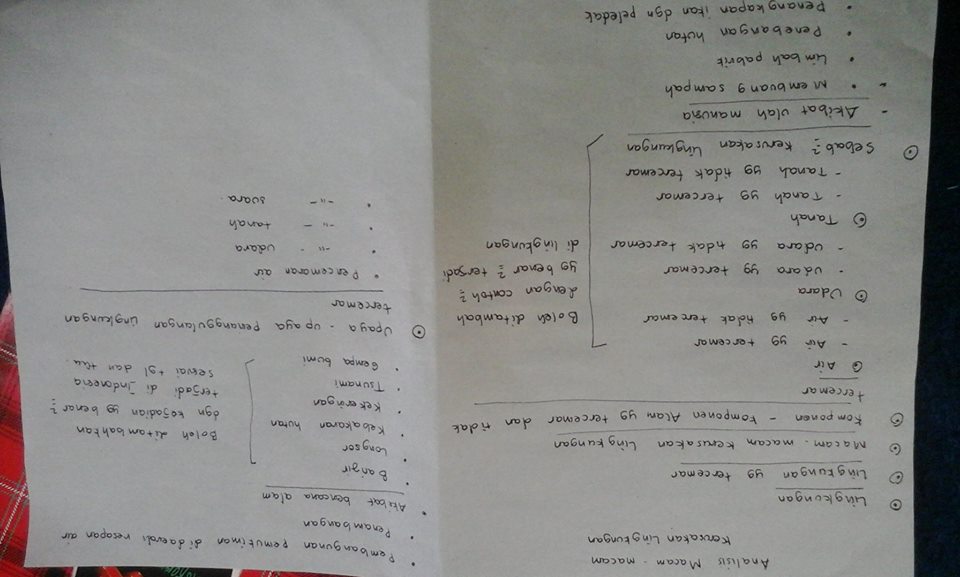 Analisis Macam - macam
Kerusakan Lingkungan
Lingkungan
Lingkungan yg tercemar
Macam - macam kerusakan Lingkungan
Komponen - komponen Alam yg tercemar dan tidak
tercemar
Air
- Air yg tercemar
- Air yg tidak tercemar
Udara
- udara yg tercemar
- udara yg tidak tercemar
Tanah
- Tanah yg tercemar
- Tanah yg tidak tercemar
Boleh ditambah
dengan contoh2
yg benar2 terjadi
di lingkungan
Sebab2 kerusakan Lingkungan
- Akibat ulah manusia
• Membuang sampah
• Limbah pabrik
• Penebangan hutan
• Penangkapan ikan dgn peledak
• Pembangunan pemukiman didaerah resapan air
• Penambangan
• Akibat bencana alam
• Banjir
• Longsor
• Kebakaran hutan
• Kekeringan
• Tsunami
• Gempa bumi
Boleh ditambahkan
dgn kejadian yg benar2
terjadi di Indonesia
sesuai tgl dan thn.
Upaya - upaya Penanggulangan lingkungan
tercemar
• Pencemaran air
• -"- udara
• -"- tanah
• -"- suara